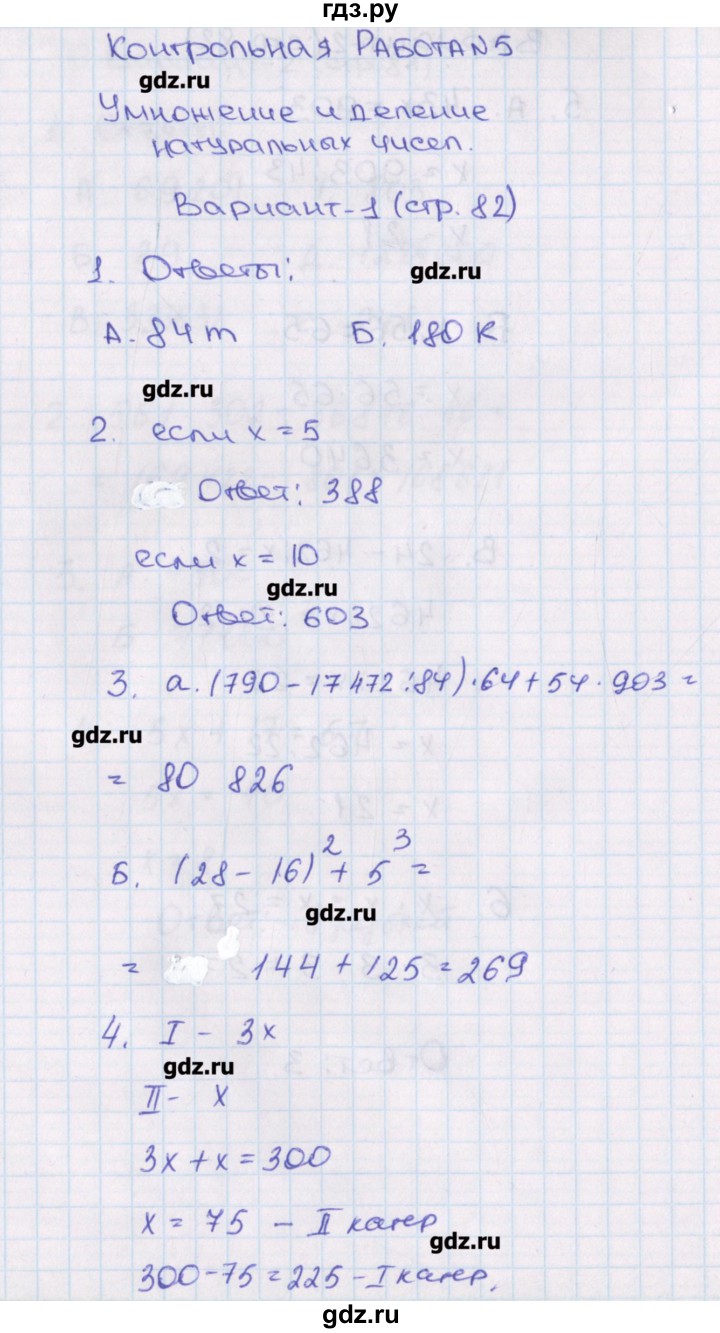 гдз.ру
Контрольная РАБОТА N 5
gdz.ru
Умножение и деление
натуральных чисел.
Вариант-1 (стр. 82)
1. Ответы:
gdz.ru
А. 84 m
Б. 180 К
gdz.ru
2. если x = 5
Ответ: 388
если x = 10
gdz.ru
Ответ: 603
3. а. (790 - 17 472 : 84) · 64 + 54 · 903 =
gdz.ru
= 80 826
Б. (28 - 16)² + 5³ =
gdz.ru
= 144 + 125 = 269
4. I - 3x
gdz.ru
II - x
3x + x = 300
x = 75 - II катер
gdz.ru
300 - 75 = 225 - I катер.
gdz.ru